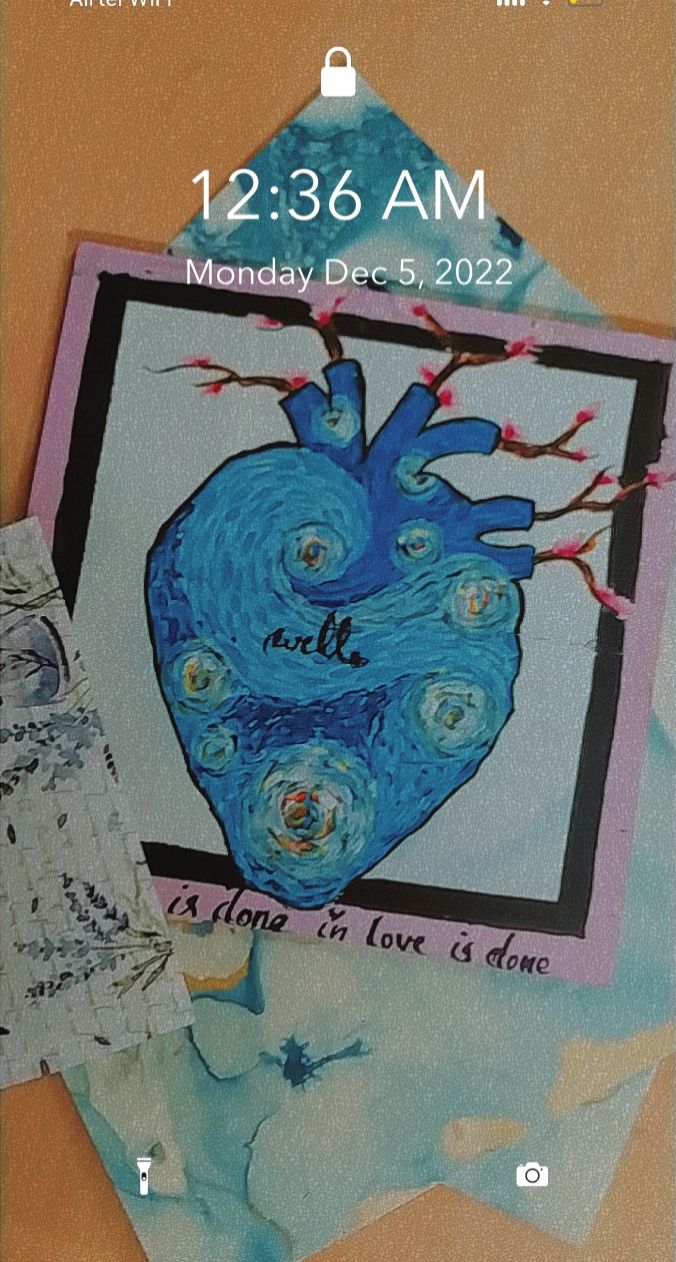 Airtel WiFi
12:36 AM
Monday Dec 5, 2022
well
is done in love is done